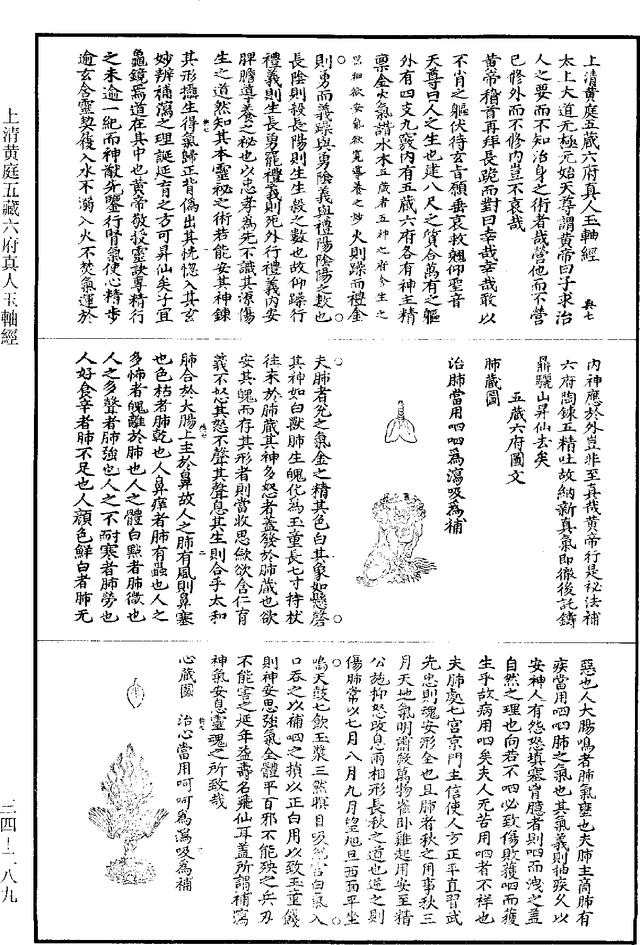 上清黄庭五藏六府真人玉軸經
上清黄庭五藏六府真人玉軸經 典七
太上大道无極元始天尊謂黄帝曰子求治
人之要而不知治身之術者哉營他而不營
已修外而不修内豈不哀哉
黄帝稽首再拜長跪而對曰幸哉幸哉敢以
不肖之軀伏待玄言願垂哀救翹仰聖音
天尊曰人之生也建八尺之質合萬有之軀
外有四支九竅内有五藏六府各有神主精
禀金火氣諧水木
則勇而義躁與勇陰義與禮陽陰陽之數也
長陰則殺長陽則生生殺之數也故仰躁行
禮義則生長勇罷禮義則死外行禮義内安
脾膽導養之秘也以忠孝為先不識其源傷
生之道然知其本靈祕之術若能安其神鍊
其形攝生得氣歸正背偽出其恍惚入其玄
妙辨補瀉之理誕延育之方可昇仙矣子宜
龜鏡焉道在其中也黄帝敬授靈訣專精行
之未逾一紀而神猷先鑒行胷氣使心精步
逾玄含靈契後入水不溺入火不焚氣運於
内神應於外豈非至真哉黄帝行是祕法補
六府陶鍊五精吐故納新真氣即徹後託鑄
鼎驪山昇仙去矣
五藏六府圖文
肺藏圖
治肺當用呬呬為瀉吸為補
夫肺者兑之氣金之精其色白其象如懸磬
其神如白獸肺生魄化為玉童長七寸持杖
往来於肺藏其神多怒者蓋發於肺藏也欲
安其魄而存其形者則當收思歛欲含仁育
義不怒其怒不聲其聲息其生則合乎太和
肺合於大腸上主於鼻故人之肺有風則鼻塞
也色枯者肺乾也人鼻痒者肺有蟲也人之
多怖者魄離於肺也人之體白點者肺微也
人之多聲者肺強也人之不耐寒者肺勞也
人好食辛者肺不足也人顔色鮮白者肺无
惡也人大腸鳴者肺氣壅也夫肺主商肺有
疾當用呬呬肺之氣也其氣義則抽疾久以
安神人有怨怒填塞胷臆者則呬而洩之蓋
自然之理也向若不呬必致傷敗獲呬而獲
生乎故病用呬矣夫人无苦用呬者不祥也
夫肺處七宫京門主信使人方正平直習武
先忠則魂安形全也且肺者秋之用事秋三
月天地氣明肅殺萬物雀卧雞起用安至精
公施抑怒攻息兩相形長秋之道也逆之則
傷肺常以七月八月九月望旭旦西面平坐
鳴天鼓七飲玉漿三然瞑目吸兑宫白氣入
口吞之以補呬之損以正白用以致玉童饌
則神安思強氣全體平百邪不能殃之兵刃
不能害之延年益壽名飛仙耳蓋所謂補瀉
神氣安息靈魂之所致哉
心藏圖 治心當用呵呵為瀉吸為補
三四-二八九